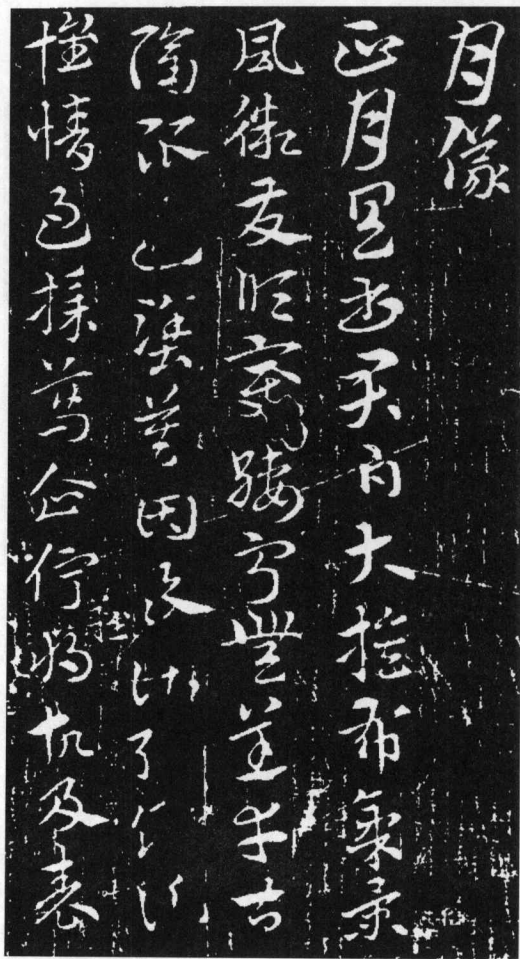 月儀
正月具書君白大蔟布氣景
風微發順變綏寧無恙幸甚
隔限遐塗莫因良話引領託
懷情過採葛企佇將故及表